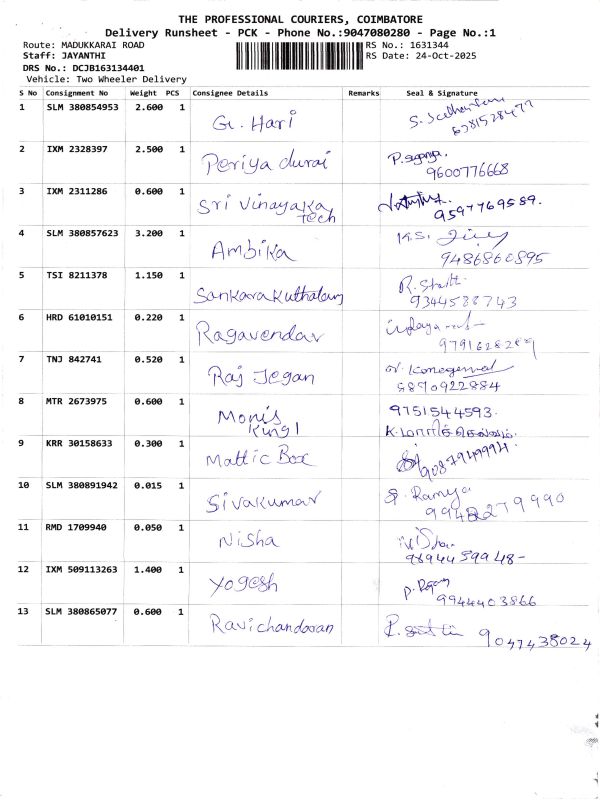 THE PROFESSIONAL COURIERS, COIMBATORE
Delivery Runsheet - PCK - Phone No.:9047080280 - Page No.:1
Route: MADUKKARAI ROAD RS No.: 1631344
Staff: JAYANTHI RS Date: 24-Oct-2025
DRS No.: DCJB163134401
Vehicle: Two Wheeler Delivery
S No Consignment No Weight PCS Consignee Details Remarks Seal & Signature
1 SLM 380854953 2.600 1 G. Hari
2 IXM 2328397 2.500 1 Periya durai
9600776668
3 IXM 2311286 0.600 1 Sri Vinayaka
tech 9597769589.
4 SLM 380857623 3.200 1 Ambika K.S.
9486860895
5 TSI 8211378 1.150 1 Sankarakuthalam R.
9344588743
6 HRD 61010151 0.220 1 Ragavendar
7 TNJ 842741 0.520 1 Raj Jegan
8870922884
8 MTR 2673975 0.600 1 Monis 9751544593.
King1
9 KRR 30158633 0.300 1 Mattic Box
10 SLM 380891942 0.015 1 Sivakumar Ramya
11 RMD 1709940 0.050 1 Nisha
9694459948-
12 IXM 509113263 1.400 1 Yogesh
9944403866
13 SLM 380865077 0.600 1 Ravichandran 9047438024